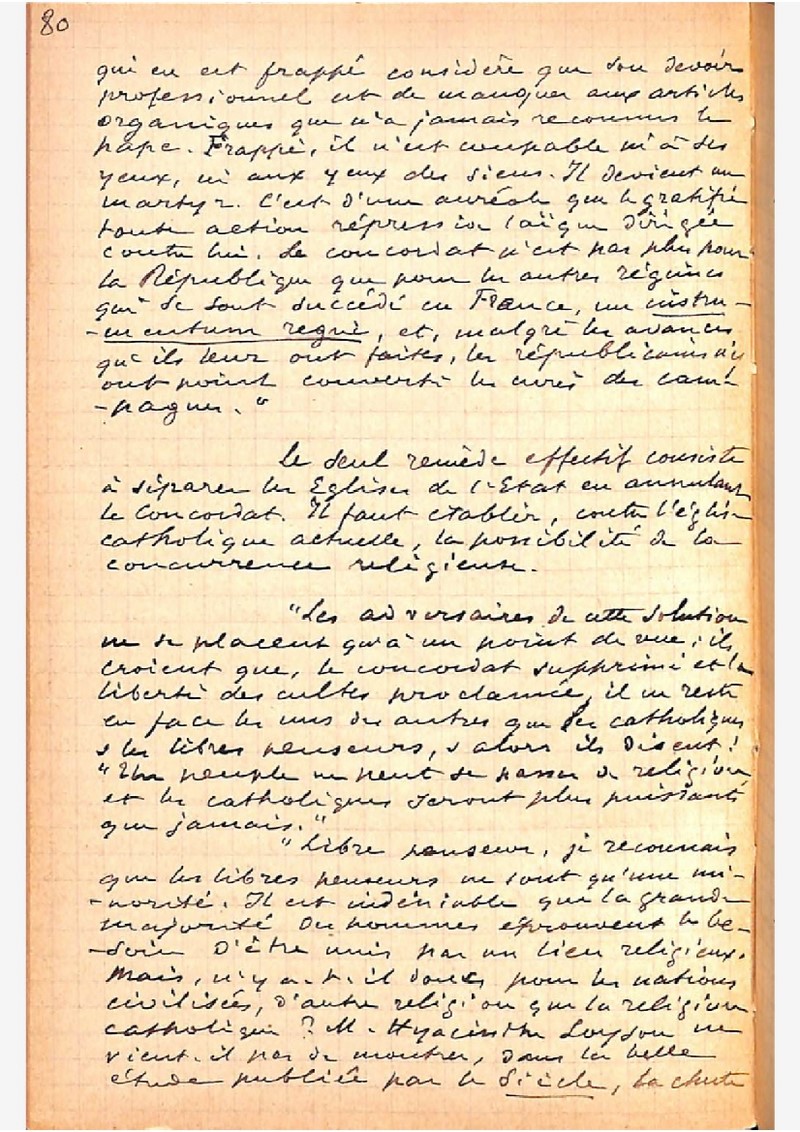 80
qui en est frappé considère que son devoir
professionnel est de manquer aux articles
organiques que n'a jamais reconnus le
pape. Frappé, il n'est coupable ni à ses
yeux, ni aux yeux des siens. Il devient un
martyr. C'est d'une auréole que le gratifie
toute action répressive laïque dirigée
contre lui. Le concordat n'est pas plus pour
la République que pour les autres régimes
qui se sont succédé en France, un instru-
-mentum regni, et, malgré les avances
qu'ils leur ont faites, les républicains n'
ont point converti les curés des cam-
-pagnes."
Le seul remède effectif consiste
à séparer les Eglises de l'Etat en annulant
le Concordat. Il faut établir, contre l'église
catholique actuelle, la possibilité de la
concurrence religieuse.
"Les adversaires de cette solution
ne se placent qu'à un point de vue ; ils
croient que, le concordat supprimé et la
liberté des cultes proclamée, il ne reste
en face les uns des autres que les catholiques
& les libres penseurs, & alors ils disent :
"Un peuple ne peut se passer de religion
et les catholiques seront plus puissants
que jamais."
"Libre penseur, je reconnais
que les libres penseurs ne sont qu'une mi-
-norité. Il est indéniable que la grande
majorité des hommes éprouvent le be-
-soin d'être unis par un lien religieux.
Mais, n'y a-t-il donc pour les nations
civilisées, d'autre religion que la religion
catholique ? M. Hyacinthe Loyson ne
vient-il pas de montrer, dans la belle
étude publiée par le Siècle, la chute